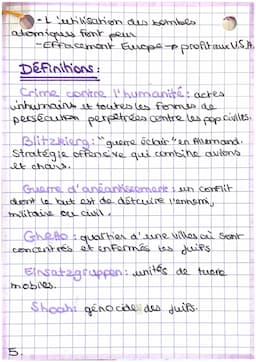 - L'utilisation des bombes
atomiques font peur
- Effacement Europe → profit aux U.S.A.
DÉFinitions:
Crime contre l'humanité: actes
inhumains et toutes les formes de
persécution perpétrées contre les pop civiles.
Blitzkrierg: "guerre éclair" en Allemand.
Stratégie offensive qui combine avions
et chars.
Guerre d'anéantissement: un conflit
dont le but est de détruire l'ennemi,
militaire ou civil.
Ghetto: quartier d'une villes où sont
concentrés et enfermés les juifs
Einsatzgruppen: unités de tuerie
mobiles.
Shoah: génocide des juifs.
5.